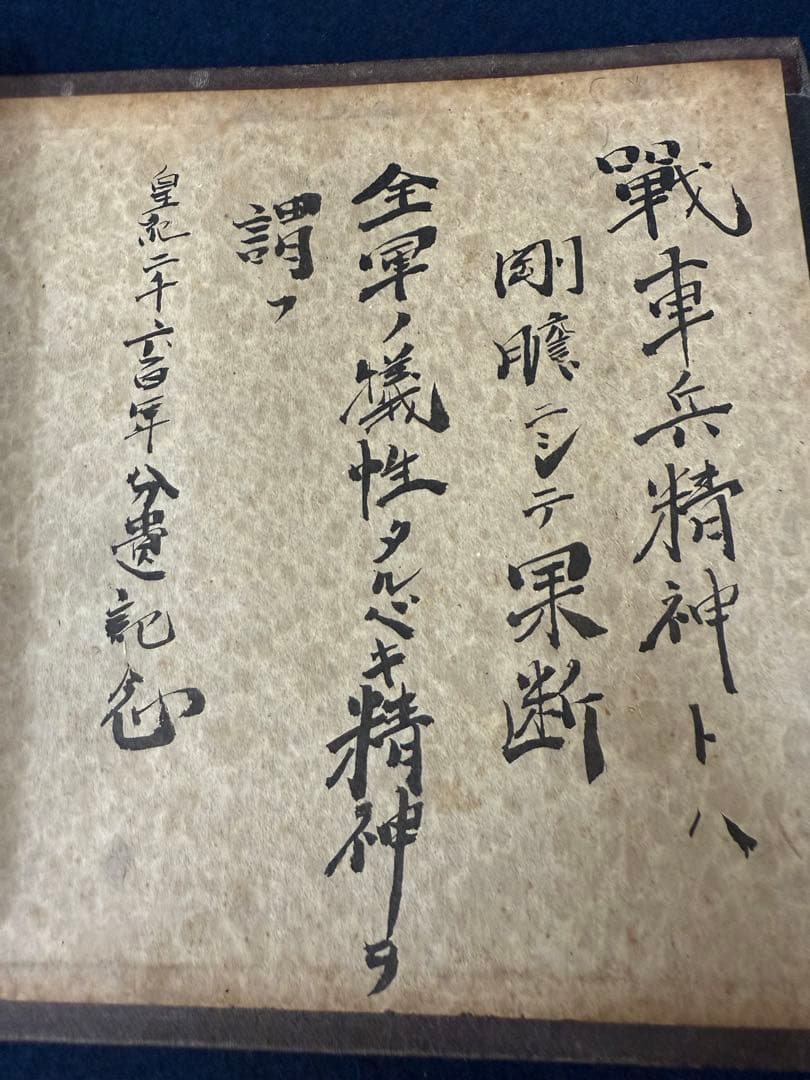 戰車兵精神トハ
剛膽ニシテ果断
全軍ノ犠性タルベキ精神ヲ
謂フ
皇紀二千六百年分遣記念